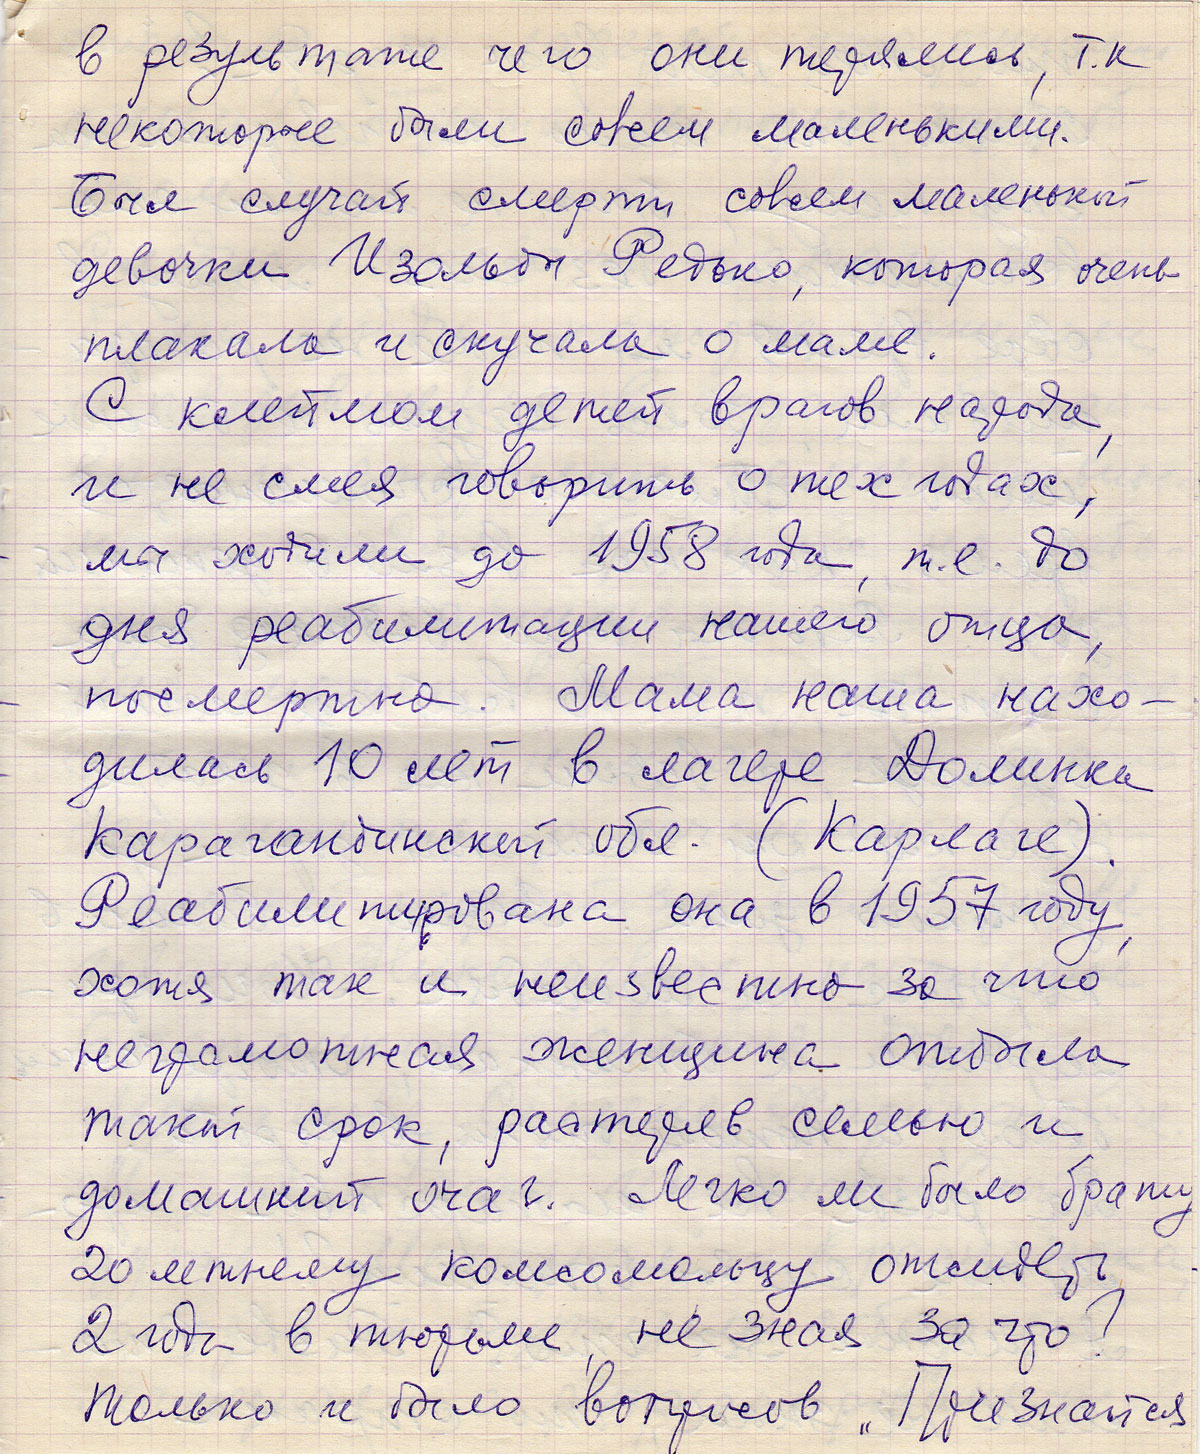 в результате чего они терялись, т.к
некоторые были совсем маленькими.
Был случай смерти совсем маленькой
девочки Изольды Редько, которая очень
плакала и скучала о маме.
С клеймом детей врагов народа,
и не смея говорить о тех годах,
мы ходили до 1958 года, т.е. до
дня реабилитации нашего отца,
посмертно. Мама наша нахо-
дилась 10 лет в лагере Долинка
Карагандинской обл. (Карлаге).
Реабилитирована она в 1957 году,
хотя так и неизвестно за что
неграмотная женщина отбыла
такой срок, растеряв семью и
домашний очаг. Легко ли было брату
20 летнему комсомольцу отсидеть
2 года в тюрьме, не зная за что?
только и было вопросов „Признайся